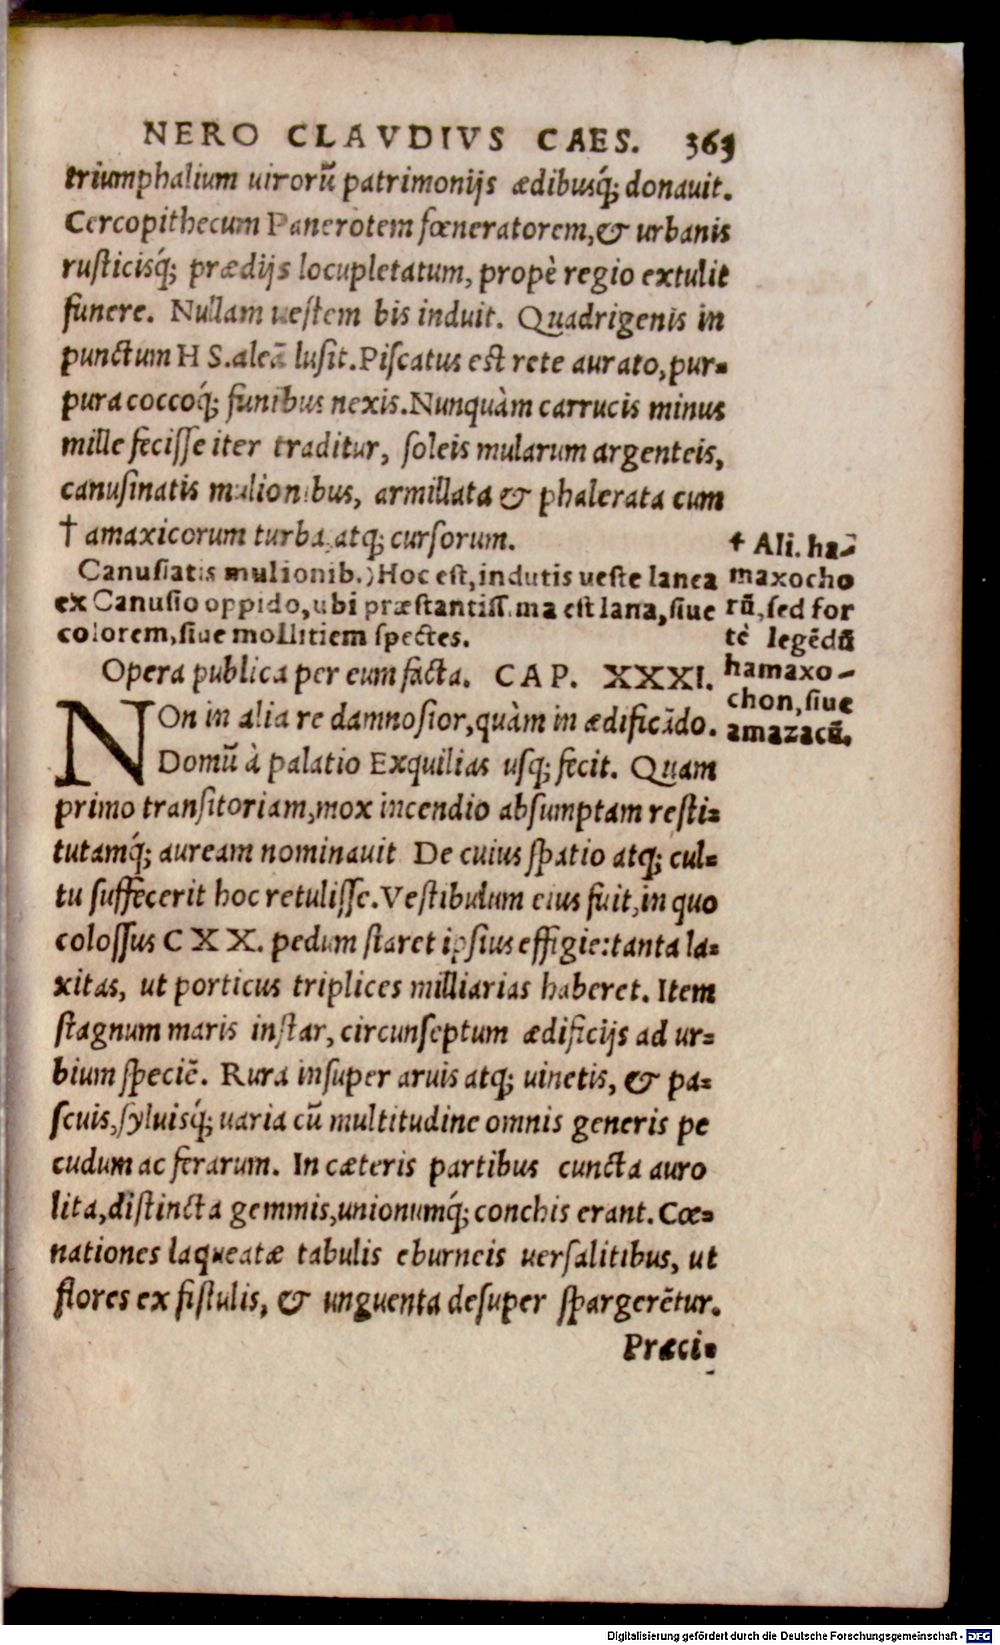 NERO CLAVDIVS CAES. 363
triumphalium uirorū patrimonijs ædibusq́; donauit.
Cercopithecum Panerotem fœneratorem,& urbanis
rusticisq́; prædijs locupletatum, propè regio extulit
funere. Nullam uestem bis induit. Quadrigenis in
punctum HS.aleā lusit.Piscatus est rete aurato,pur=
pura coccoq́; funibus nexis.Nunquàm carrucis minus
mille fecisse iter traditur, soleis mularum argenteis,
canusinatis mulionibus, armillata & phalerata cum
† amaxicorum turba,atq; cursorum.
Canusiatis mulionib.)Hoc est,indutis ueste lanea
ex Canusio oppido,ubi præstantissima est lana,siue
colorem,siue mollitiem spectes.
† Ali. ha-
maxocho
rū,sed for
tè legēdū
hamaxo-
chon,siue
amazacū.
Opera publica per eum facta. CAP. XXXI.
NOn in alia re damnosior,quàm in ædificādo.
Domū à palatio Exquilias usq; fecit. Quam
primo transitoriam,mox incendio absumptam resti=
tutamq́; auream nominauit De cuius spatio atq; cul=
tu suffecerit hoc retulisse.Vestibulum eius fuit,in quo
colossus CXX. pedum staret ipsius effigie:tanta la=
xitas, ut porticus triplices milliarias haberet. Item
stagnum maris instar, circunseptum ædificijs ad ur=
bium speciē. Rura insuper aruis atq; uinetis, & pa=
scuis,syluisq́; uaria cū multitudine omnis generis pe
cudum ac ferarum. In cæteris partibus cuncta auro
lita,distincta gemmis,unionumq́; conchis erant. Cœ=
nationes laqueatæ tabulis eburneis uersalitibus, ut
flores ex fistulis, & unguenta desuper spargerētur.
Præci=
Digitalisierung gefördert durch die Deutsche Forschungsgemeinschaft - DFG